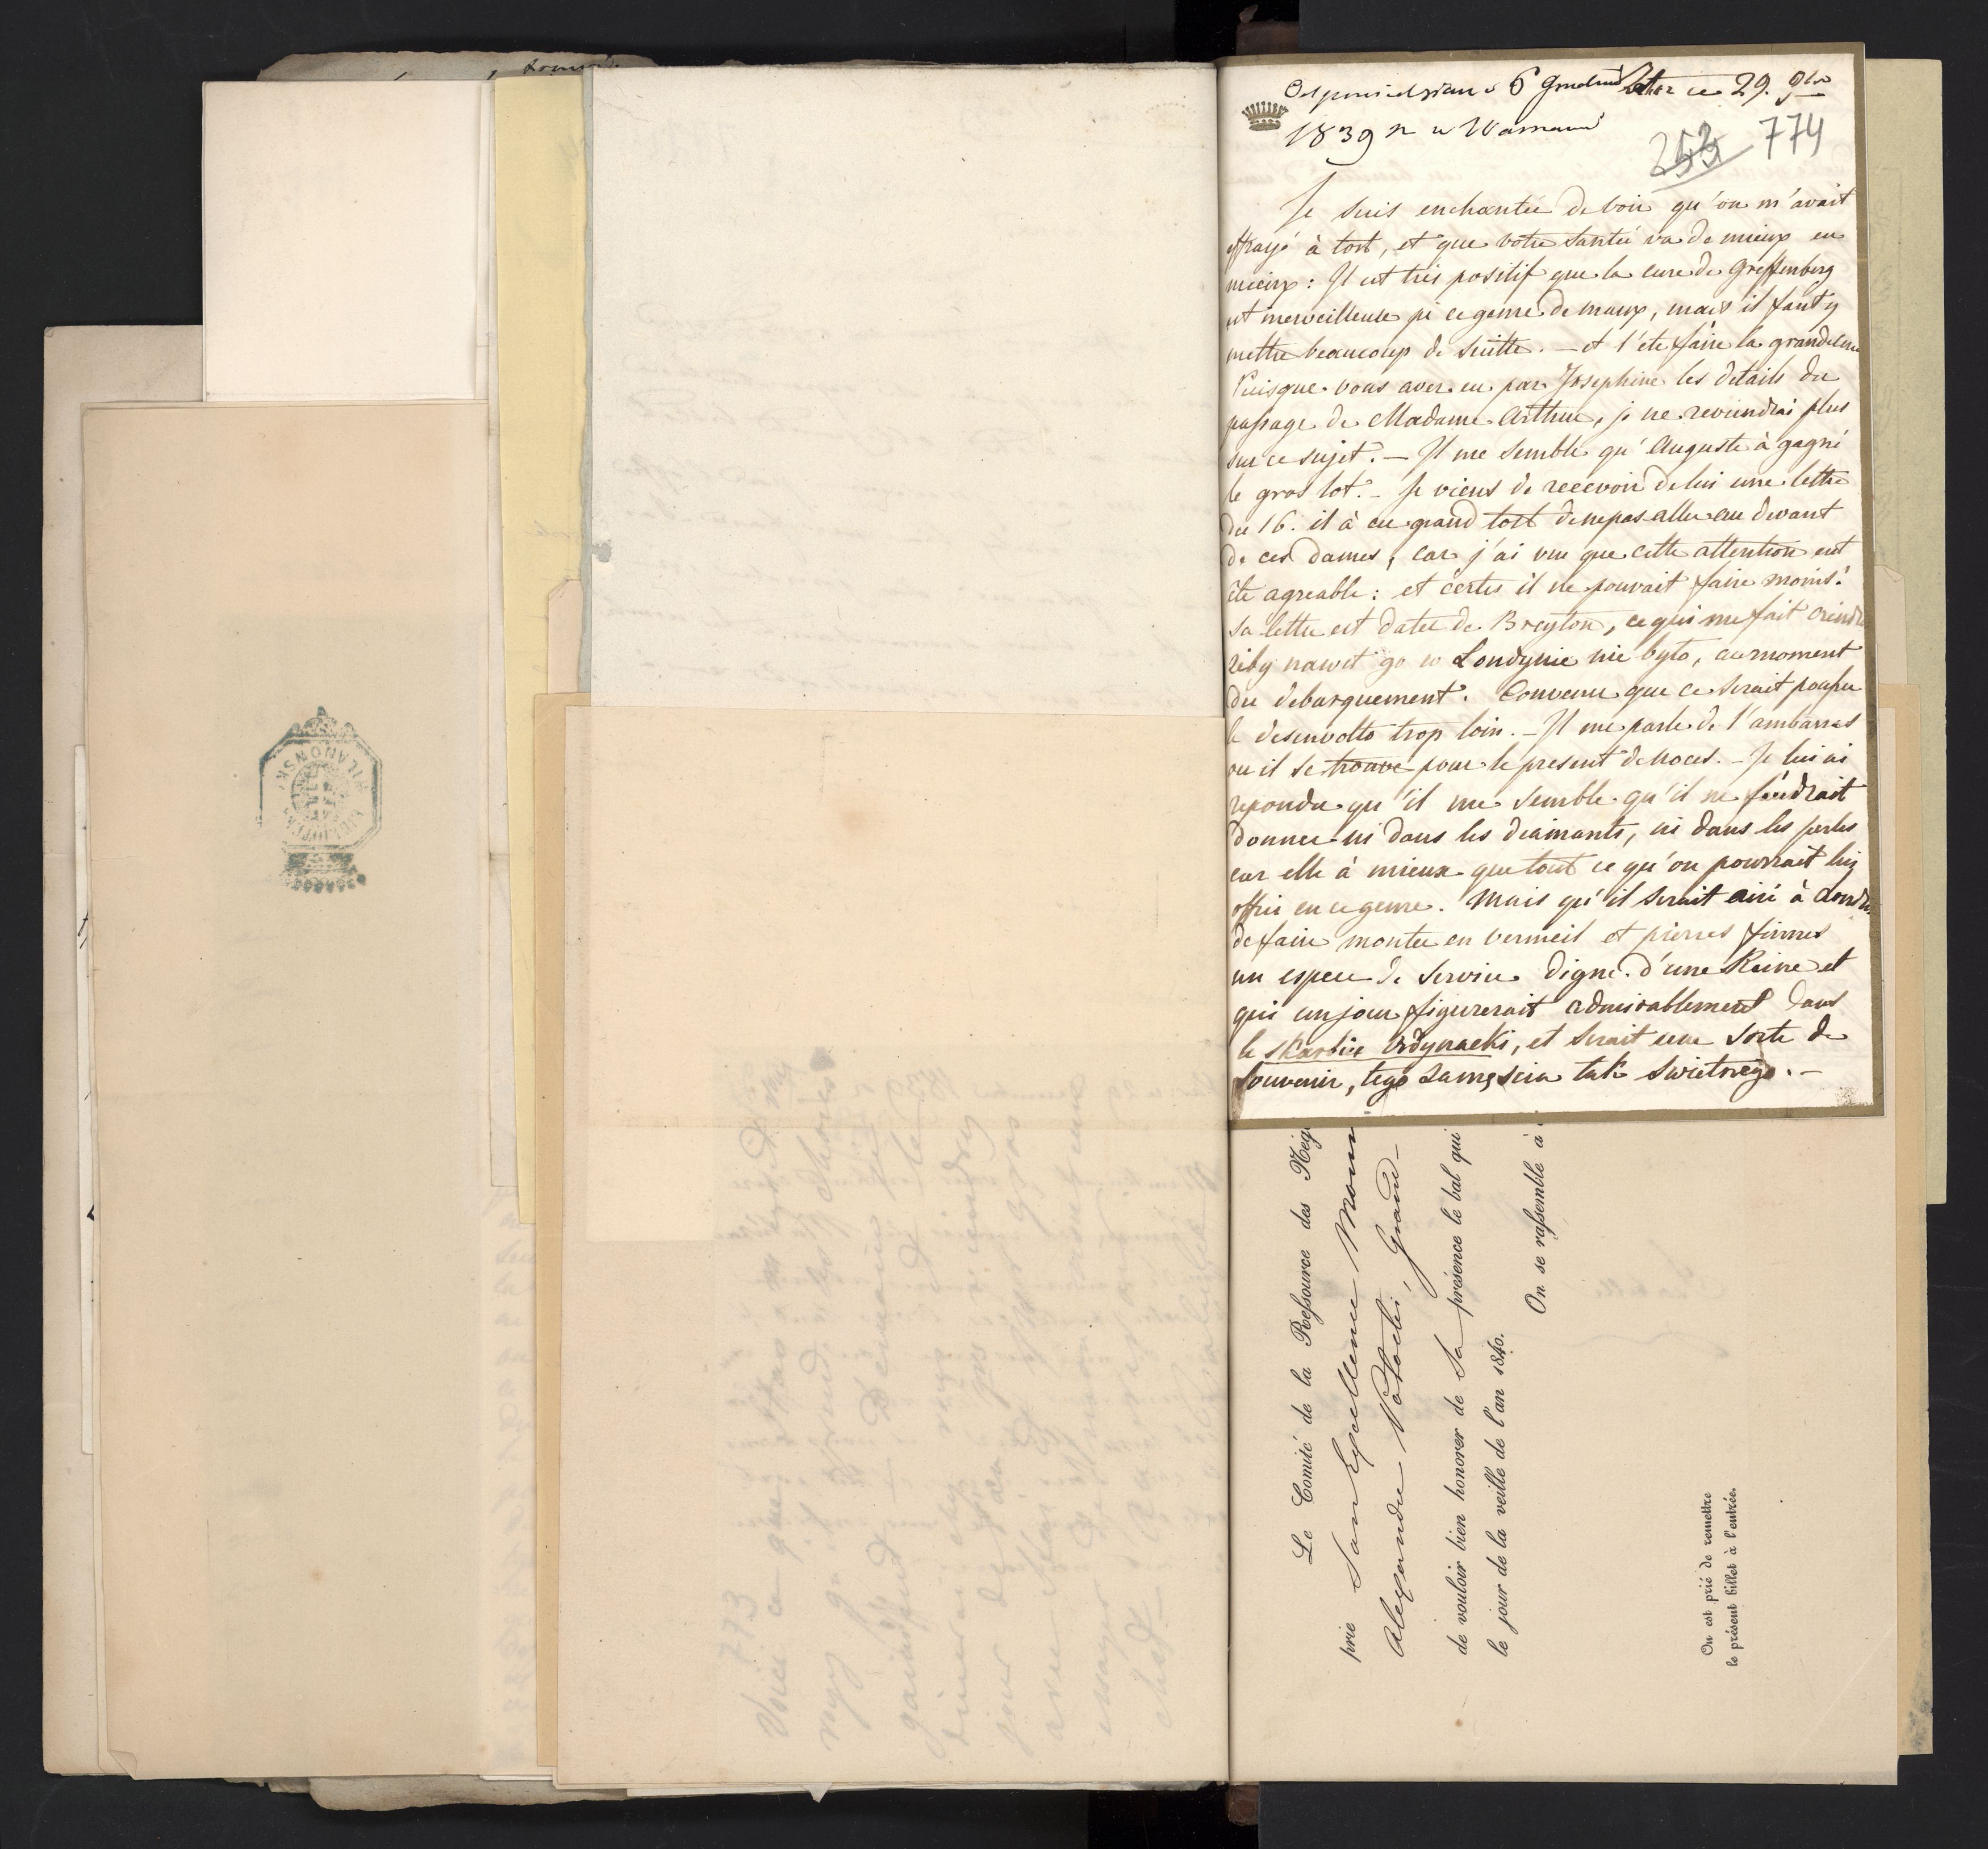 Odpowiedziano 6 Grudnia ce 29. 9bre
1839 r w Warszawie
253 774
Je suis enchantée de voir qu'on m'avait
effrayé à tort, et que votre santée va de mieux en
mieux: Il est très positif que la cure de Greffenberg
est merveilleuse pr ce genre de maux, mais il faut y
mettre beaucoup de suitte. — et l'été faire la grande cure
Puisque vous avez eu par Josephine les details du
passage de Madame Arthur, je ne reviendrai plus
sur ce sujet. — Il me semble qu'Auguste à gagné
le gros lot. — Je viens de recevoir de lui une lettre
du 16. il à eu grand tort de ne pas aller au devant
de ces dames, car j'ai vue que cette attention eut
été agreable: et certes il ne pouvait faire moins!
sa lettre est datée de Breyton, ce qui me fait craindre
żeby nawet go w Londynie nie było, au moment
du debarquement. Convenez que ce serait pousser
le desenvolto trop loin. — Il me parle de l'ambarras
ou il se trouve pour le present de noces. — Je lui ai
repondu qu'il me semble qu'il ne faudrait
donner ni dans les diamants, ni dans les perles
car elle à mieux que tout ce qu'on pourrait luy
offrir en ce genre. Mais qu'il serait aisé à Londres
de faire monter en vermeil et pierres finnes
un espece de service digne d'une Reine et
qui un jour figurerait admirablement dans
le skarbiec Ordynacki, et serait une sorte de
souvenir, tego zamęścia tak swietnego. —
Le Comité de la Ressource des Nég
prie Son Excellence Mons
Alexandre Potocki, Grand-
de vouloir bien honorer de Sa présence le bal qui
le jour de la veille de l'an 1840.
On se rassemble à
On est prié de remettre
le présent billet à l'entrée.
773